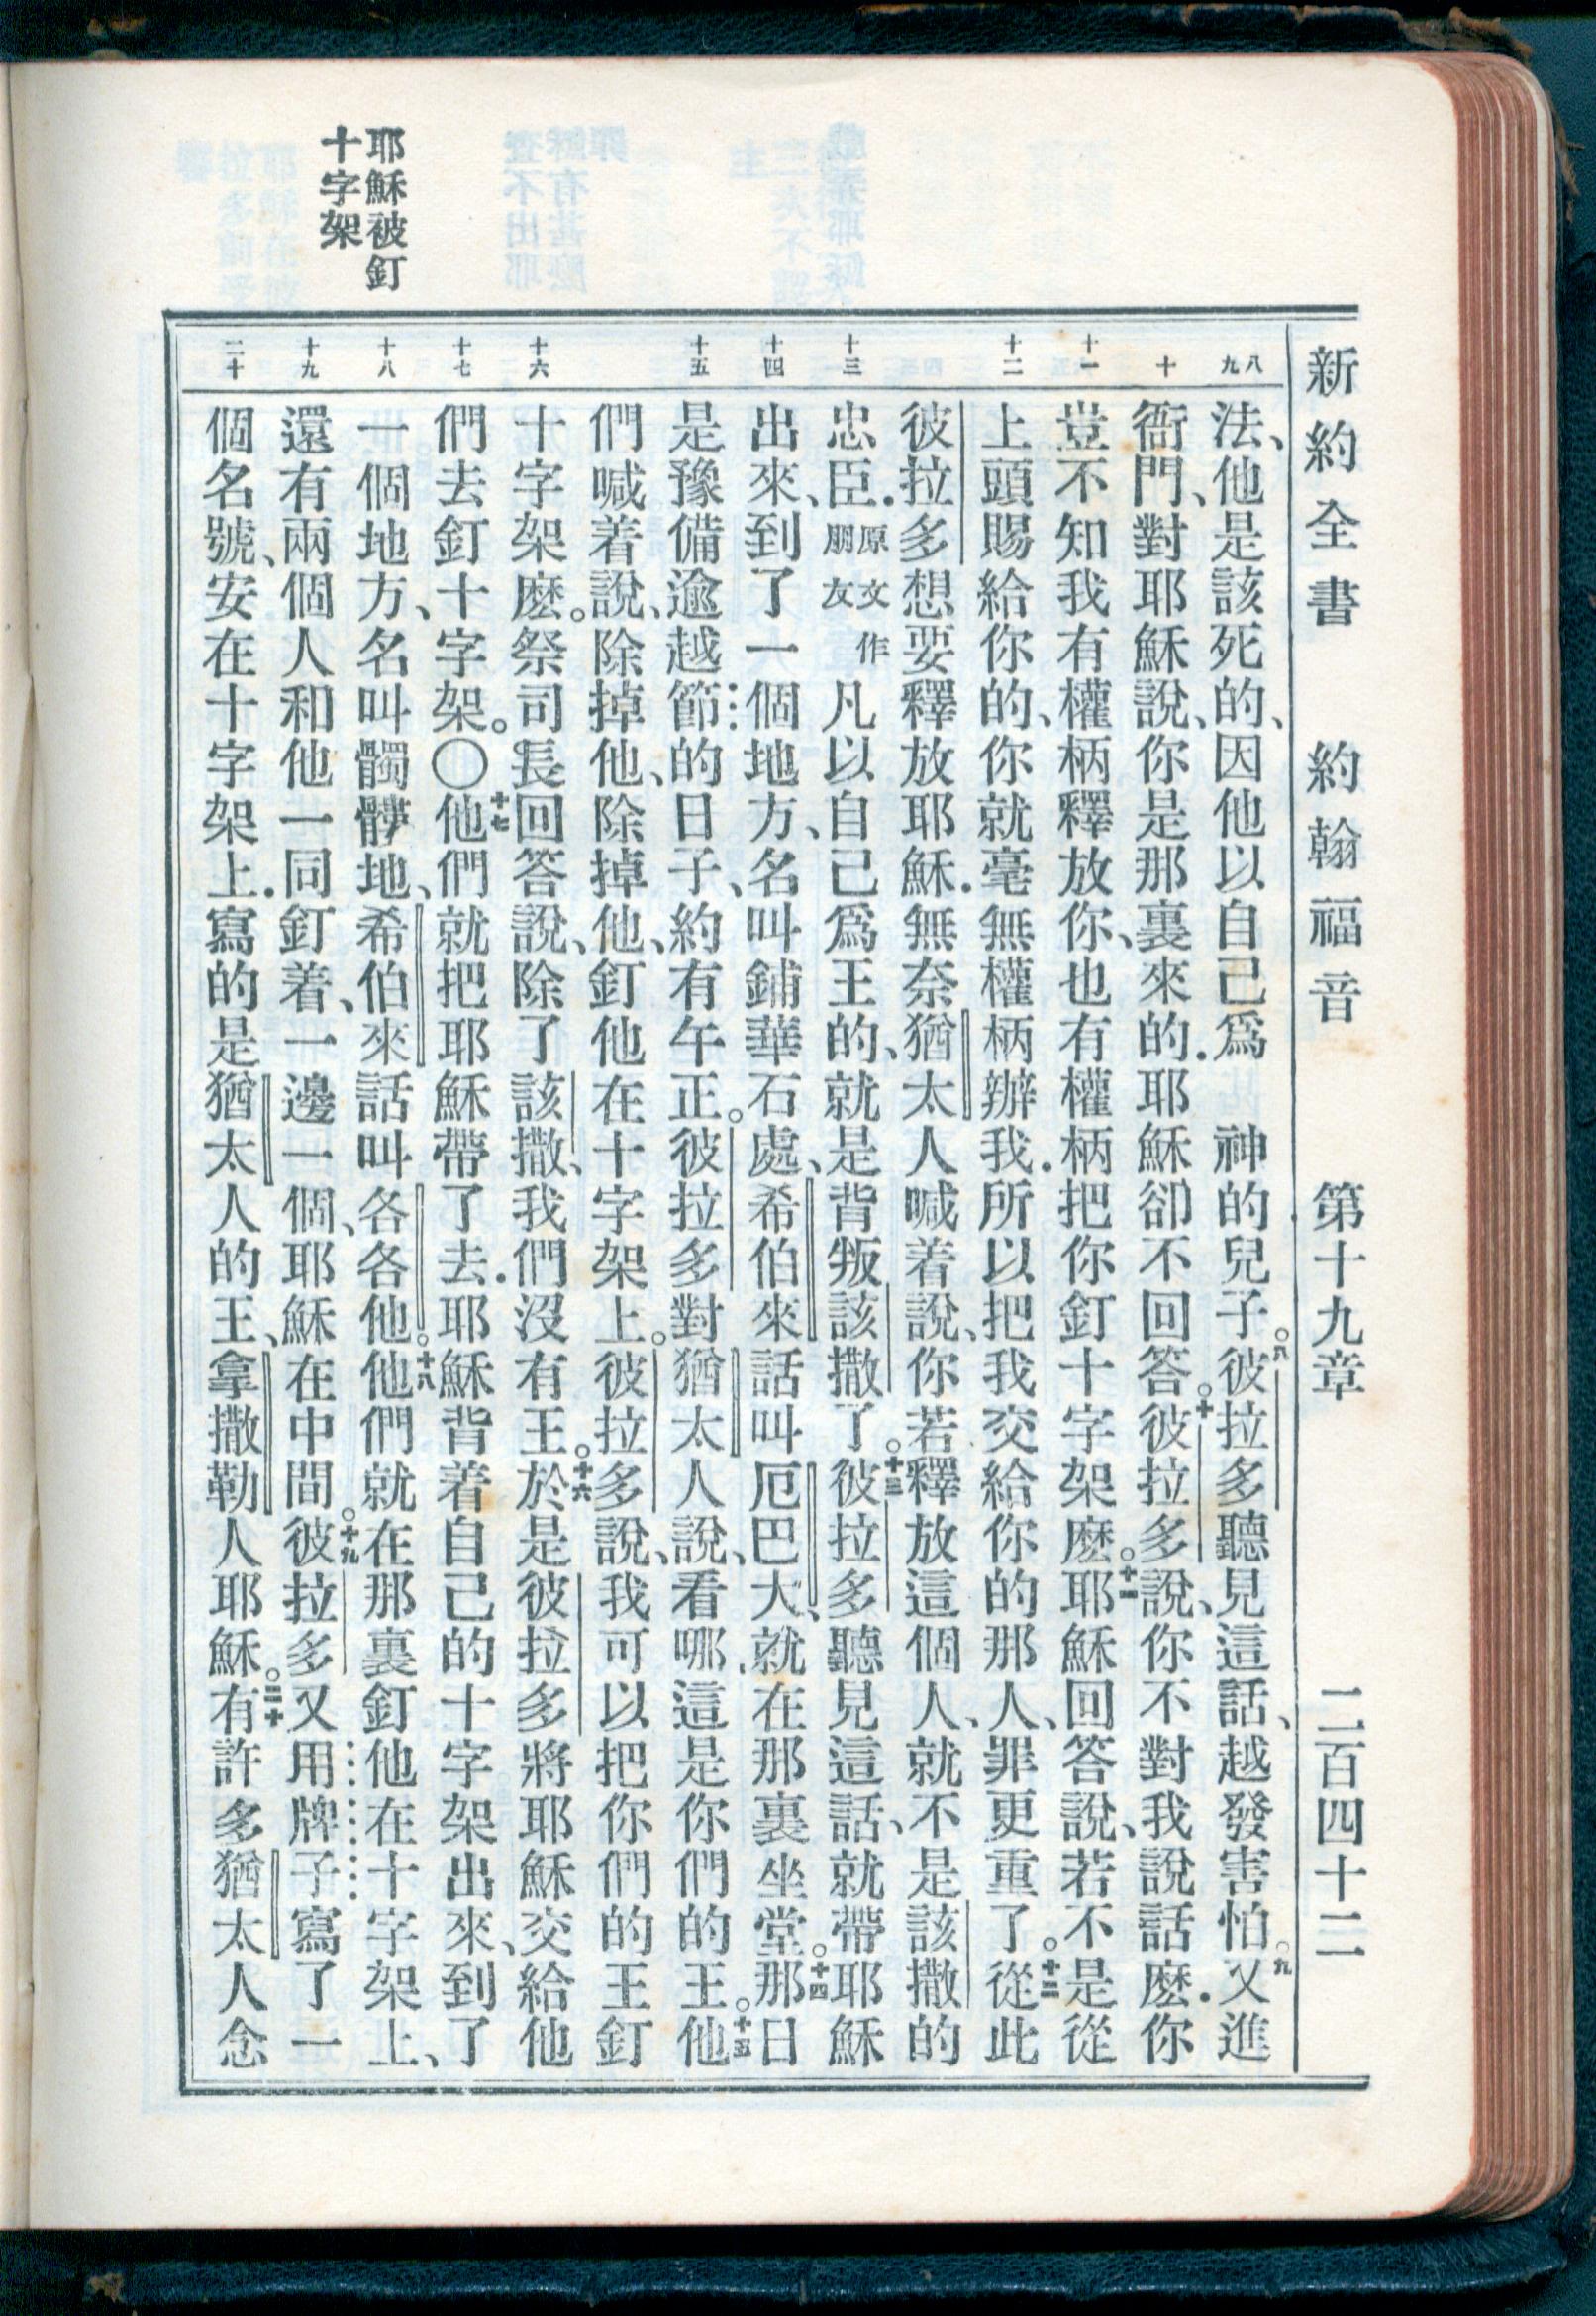 新約全書　約翰福音　第十九章　二百四十二
耶穌被釘
十字架
八
九
十
十一
十二
十三
十四
十五
十六
十七
十八
十九
二十
法、他是該死的、因他以自己爲　神的兒子。八彼拉多聽見這話、越發害怕。九又進
衙門、對耶穌說、你是那裏來的．耶穌卻不回答。十彼拉多說、你不對我說話麽．你
豈不知我有權柄釋放你、也有權柄把你釘十字架麽。十一耶穌回答說、若不是從
上頭賜給你的、你就毫無權柄辦我．所以把我交給你的那人、罪更重了。十二從此
彼拉多想要釋放耶穌．無奈猶太人喊着說、你若釋放這個人、就不是該撒的
忠臣．原文作朋友凡以自己爲王的、就是背叛該撒了。十三彼拉多聽見這話、就帶耶穌
出來、到了一個地方、名叫鋪華石處、希伯來話叫厄巴大、就在那裏坐堂。十四那日
是豫備逾越節的日子、約有午正。彼拉多對猶太人說、看哪、這是你們的王。十五他
們喊着說、除掉他、除掉他、釘他在十字架上。彼拉多說、我可以把你們的王釘
十字架麽。祭司長回答說、除了該撒、我們沒有王。十六於是彼拉多將耶穌交給他
們去釘十字架。〇十七他們就把耶穌帶了去．耶穌背着自己的十字架出來、到了
一個地方、名叫髑髏地、希伯來話叫各各他。十八他們就在那裏釘他在十字架上、
還有兩個人和他一同釘着、一邊一個、耶穌在中間。十九彼拉多又用牌子寫了一
個名號、安在十字架上．寫的是猶太人的王、拿撒勒人耶穌。二十有許多猶太人念